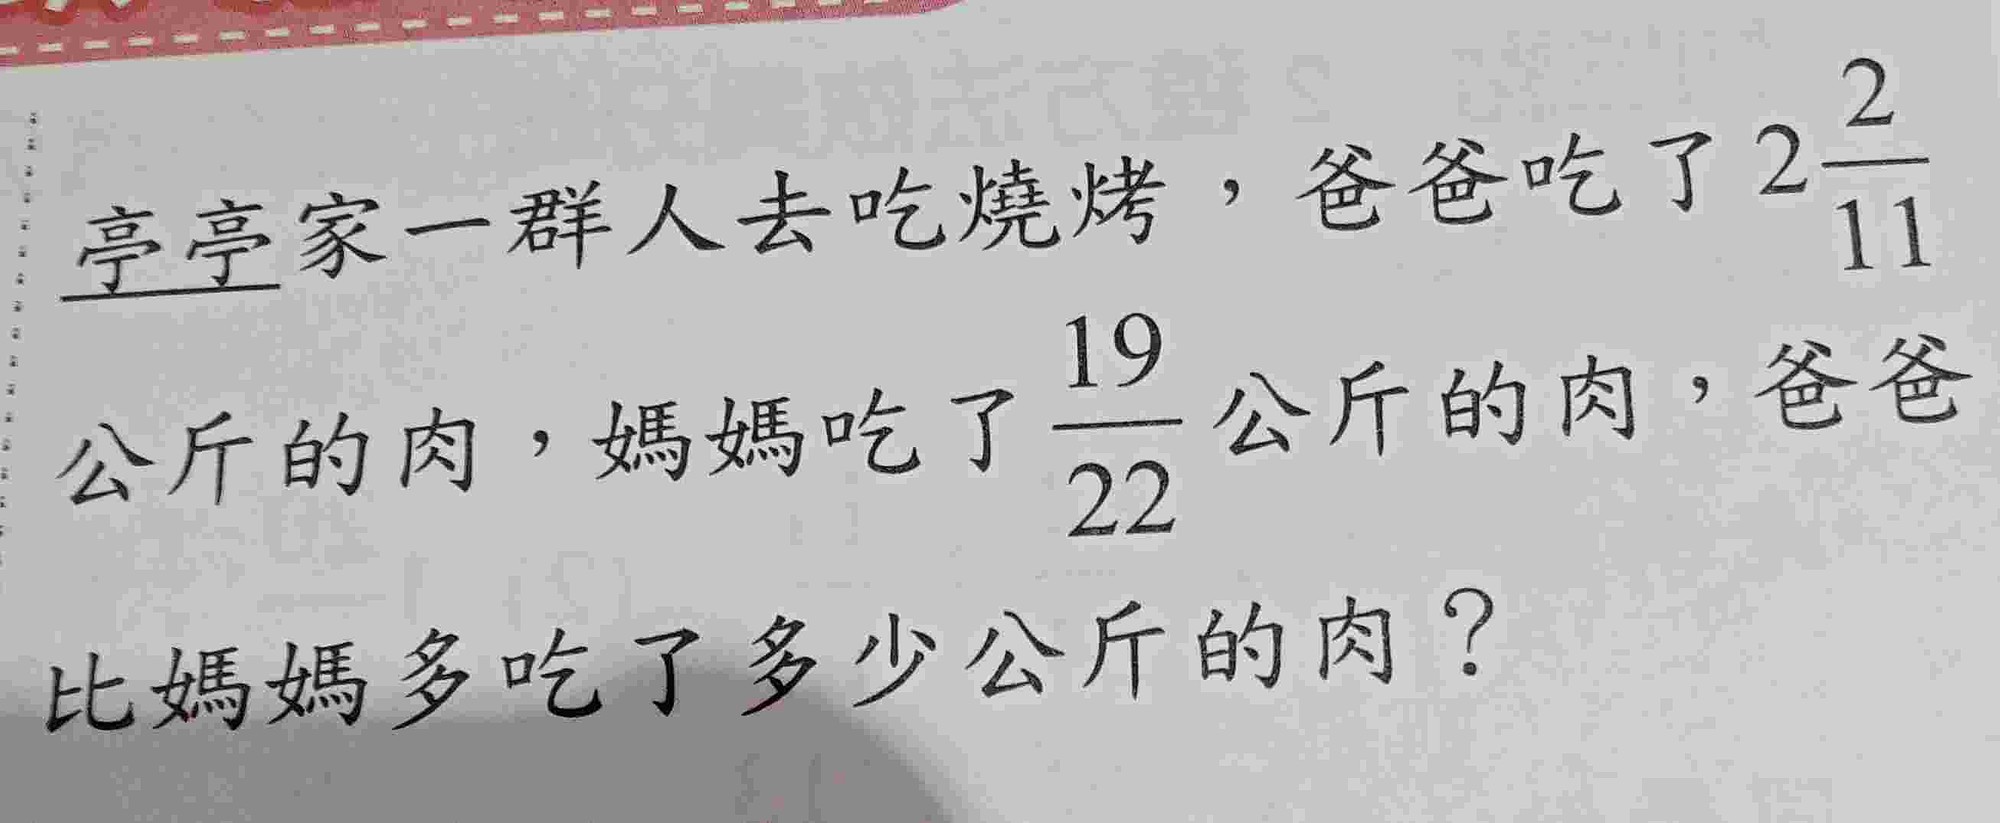 亭亭家一群人去吃燒烤，爸爸吃了2 2/11
公斤的肉，媽媽吃了19/22公斤的肉，爸爸
比媽媽多吃了多少公斤的肉？